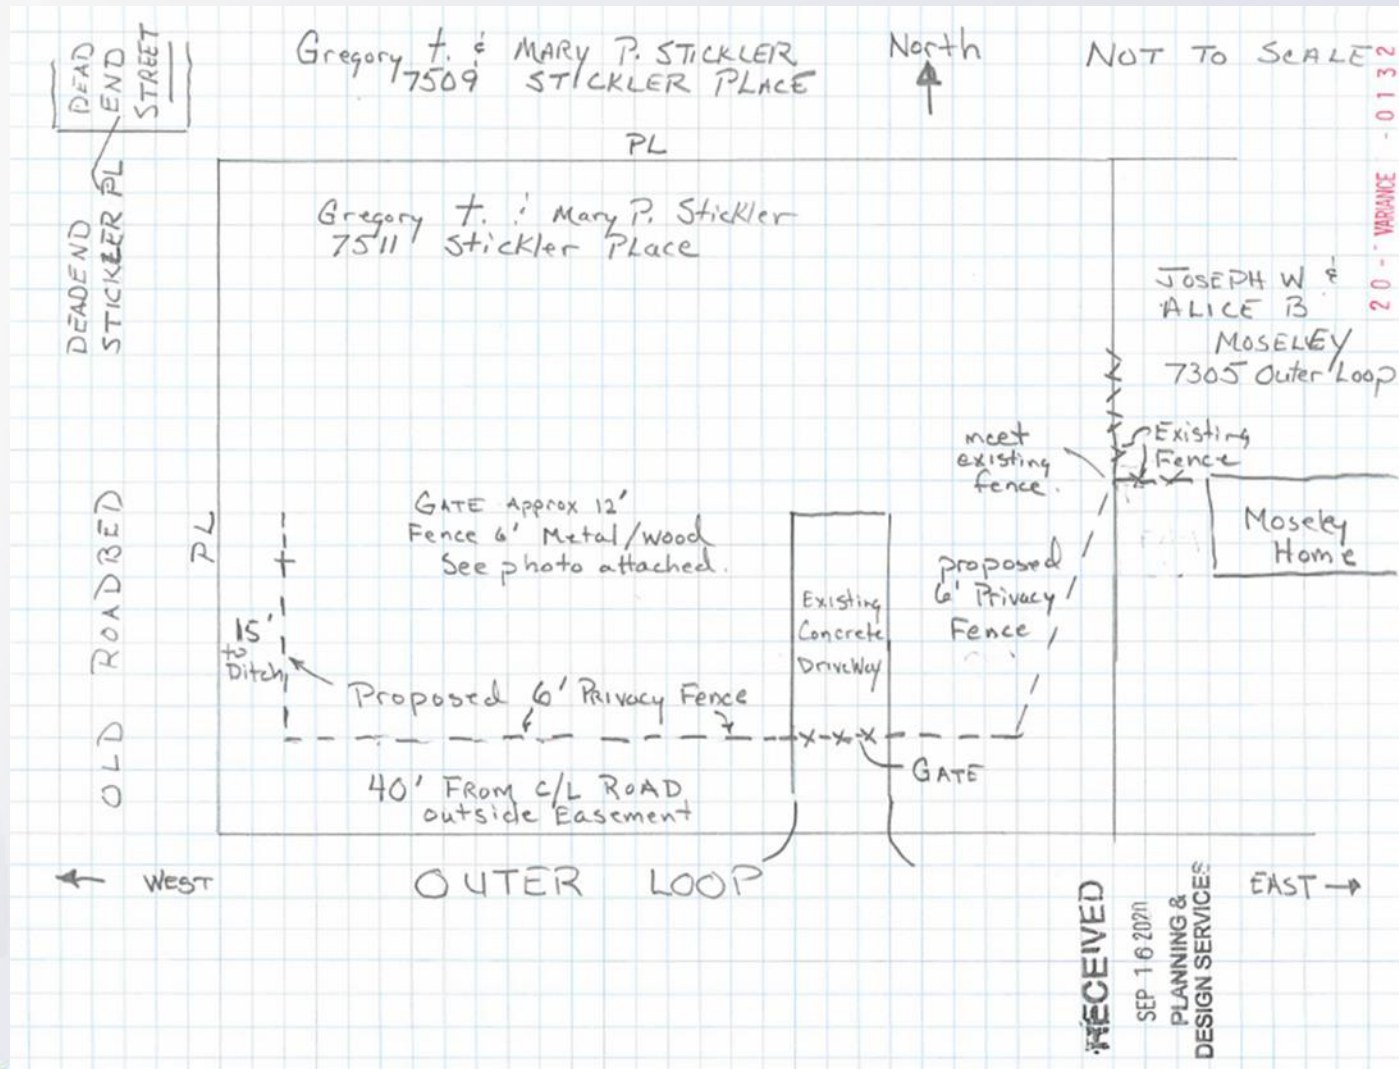 DEAD
END
STREET
Gregory T. & MARY P. STICKLER
7509 STICKLER PLACE
North
NOT TO SCALE
20 - VARIANCE - 0132
PL
DEADEND
STICKLER PL
Gregory T. & Mary P. Stickler
7511 Stickler PLace
JOSEPH W &
ALICE B
MOSELEY
7305 Outer Loop
meet
existing
fence.
Existing
Fence
Moseley
Home
OLD ROADBED
PL
GATE Approx 12'
Fence 6' Metal/wood
See photo attached.
Existing
Concrete
DriveWay
proposed
6' Privacy
Fence
15'
to
Ditch
Proposed 6' PRivacy Fence
GATE
40' FROM C/L ROAD
outside Easement
WEST
OUTER LOOP
EAST
RECEIVED
SEP 16 2020
PLANNING &
DESIGN SERVICES